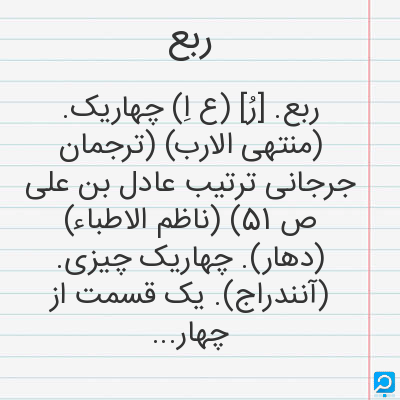 ربع
ربع. [رُ] (ع اِ) چهاریک.
(منتهی الارب) (ترجمان
جرجانی ترتیب عادل بن علی
ص ۵۱) (ناظم الاطباء)
(دهار). چهاریک چیزی.
(آنندراج). یک قسمت از
چهار...